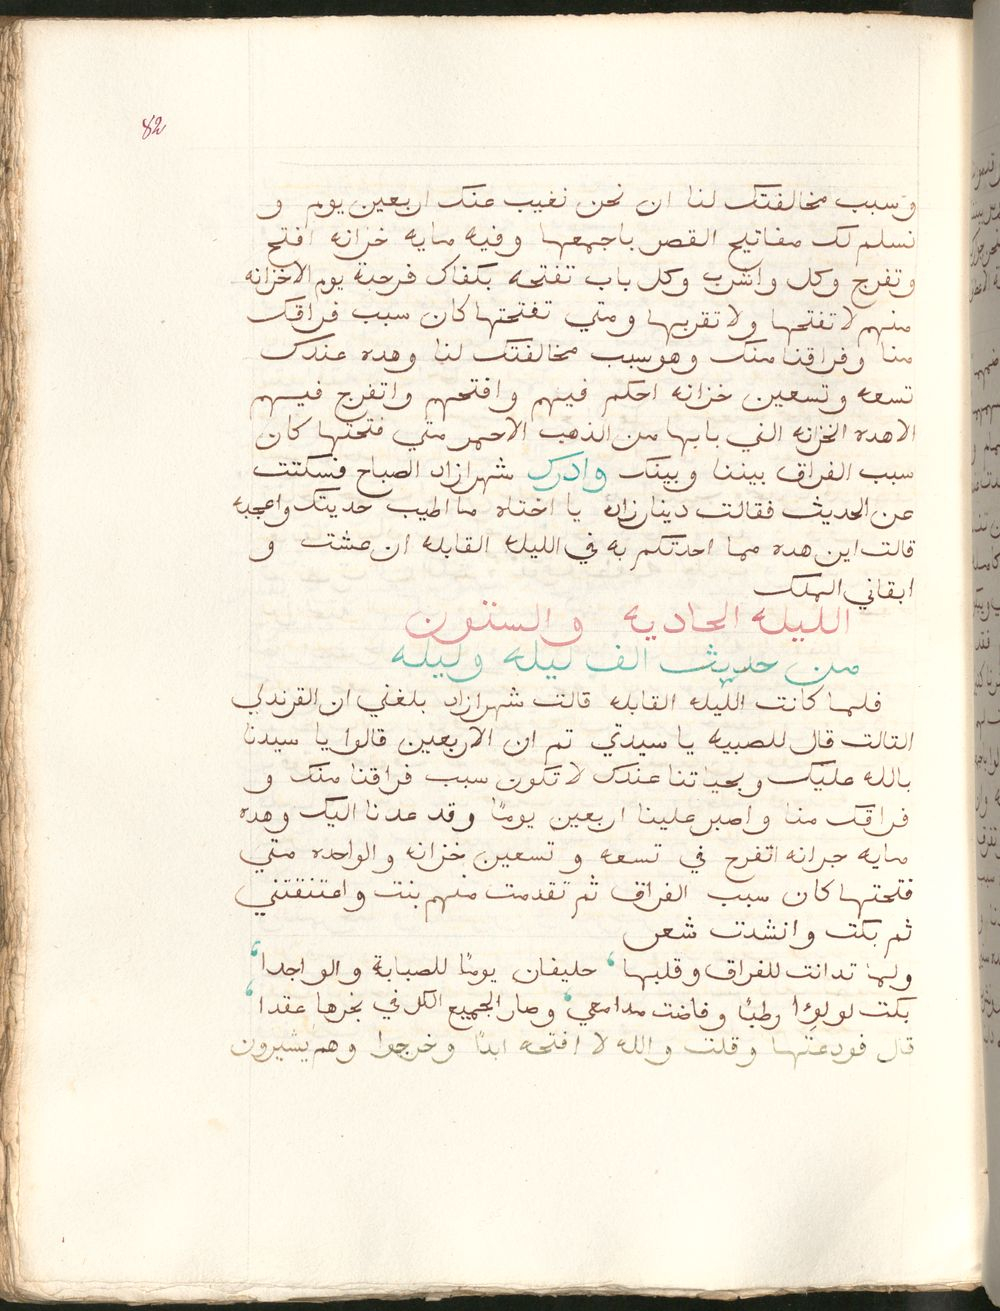 82
وسبب مخالفتك لنا ان نحن نغيب عنك اربعين يوم و
نسلم لك مفاتيح القصر باجمعها وفيه مايه خزانه افتح
وتفرج وكل واشرب وكل باب تفتحه بكفاك فرحة يوم الاخزانه
منهم لا تفتحها ولا تقربها ومتي تفتحتها كان سبب فراقك
منا وفراقنا منك وهو سبب مخالفتك لنا وهده عندك
تسعه وتسعين خزانه احكم فيهم وافتحهم واتفرج فيهم
الاهده الخزانه التي بابها من الذهب الاحمر متي فتحتها كان
سبب الفراق بيننا وبينك وادرك شهرازاد الصباح فسكتت
عن الحديث فقالت دينارزاد يا اختاه ما اطيب حديتك واعجبه
قالت اين هده مما احدتكم به في الليله القابله ان عشت و
ابقاني الملك
الليله الحاديه والستون
من حديث الف ليله وليله
فلما كانت الليله القابله قالت شهرازاد بلغني ان القرندلي
التالت قال للصبيه يا سيدتي تم ان الاربعين قالوا يا سيدنا
بالله عليك وبحياتنا عندك لا تكون سبب فراقنا منك و
فراقك منا واصبر علينا اربعين يومًا وقد عدنا اليك وهده
مايه خزانه اتفرج في تسعه وتسعين خزانه والواحده متي
فتحتها كان سبب الفراق ثم تقدمت منهم بنت واعتنقتني
ثم بكت وانشدت شعر
ولما تدانت للفراق وقلبها، حليفان يومًا للصبابة والواجدا،
بكت لولوءا رطبًا وفاضت مدامعي، وصار الجميع الكل في نحرها عقدا،
قال فودعتها وقلت والله لا افتحه ابدًا وخرجوا وهم يشيرون